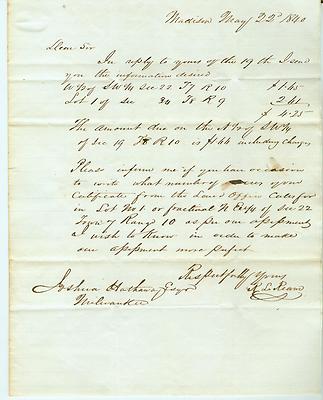 Madison May 22d 1840
Dear Sir
In reply to yours of the 19th I send
you the information desired
W ½ of SW ¼ Sec 22 T7 R10 $1.65
Lot 1 of Sec 34 T8 R9 2.61
$ 4.25
The amount due on the N ½ of SW ¼
of Sec 19 T8 R10 is $1.44 including charges
Please inform me if you have occasion
to write what number your
Certificate from the Land Office Calls for
in Lot No 1 or fractional N E ¼ of Sec 22
Town 7 Range 10 as per our assessment
I wish to know in order to make
our assessment more perfect
Respectfully Yours
Joshua Hathaway Esqr
Milwaukee